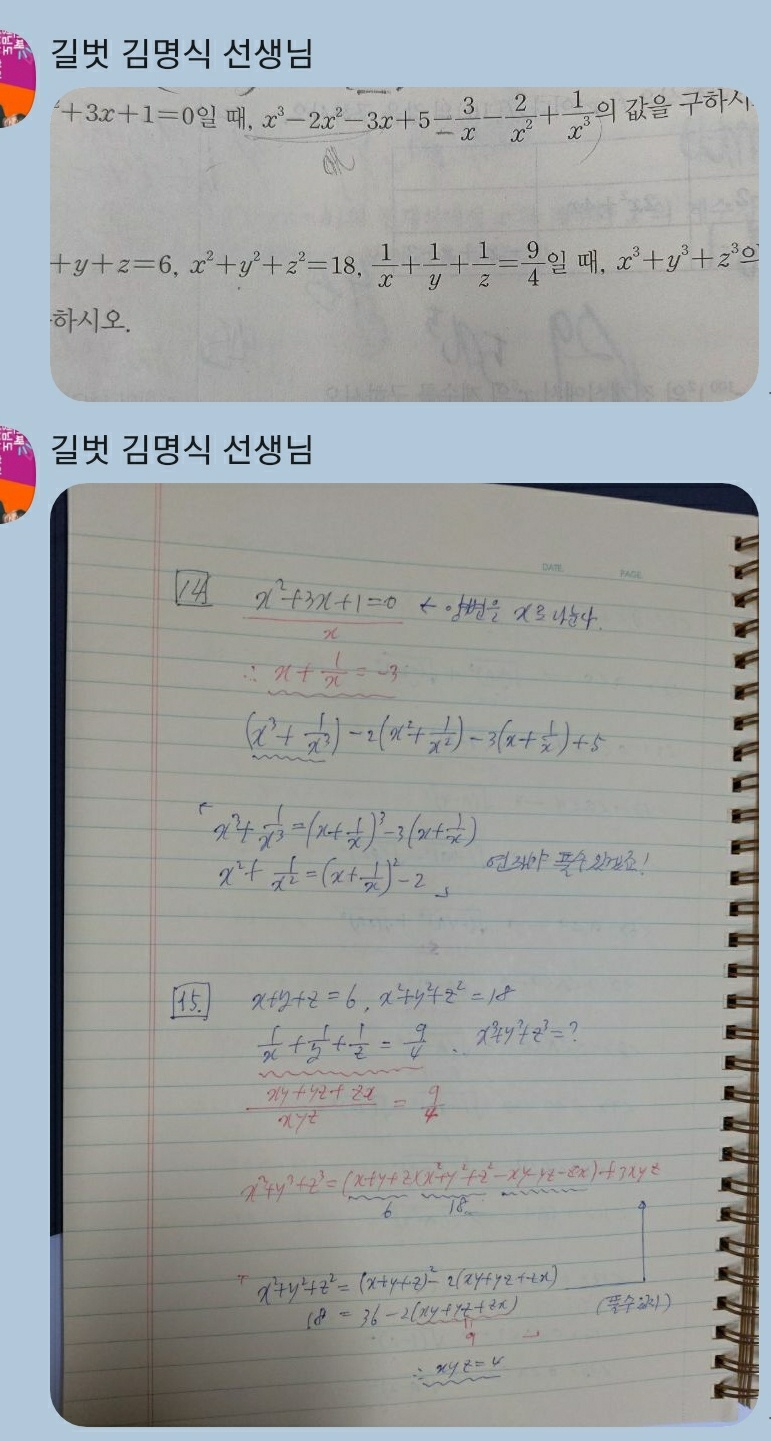 길벗 김명식 선생님
+3x+1=0일 때, x³-2x²-3x+5-3/x-2/x²+1/x³의 값을 구하시
+y+z=6, x²+y²+z²=18, 1/x+1/y+1/z=9/4일 때, x³+y³+z³의
하시오.
길벗 김명식 선생님
DATE PAGE
14 x²+3x+1=0 ← 양변을 x로 나눈다.
x
∴ x+1/x=-3
(x³+1/x³)-2(x²+1/x²)-3(x+1/x)+5
x³+1/x³=(x+1/x)³-3(x+1/x)
x²+1/x²=(x+1/x)²-2 풀수있겠죠!
15. x+y+z=6, x²+y²+z²=18
1/x+1/y+1/z=9/4. x³+y³+z³=?
xy+yz+zx/xyz=9/4
x³+y³+z³=(x+y+z)(x²+y²+z²-xy-yz-zx)+3xyz
6 18
x²+y²+z²=(x+y+z)²-2(xy+yz+zx)
18=36-2(xy+yz+zx) (풀수있지)
9
∴ xyz=4